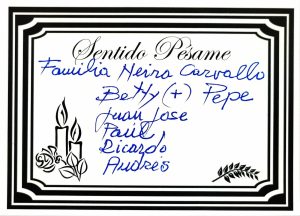 Sentido Pésame
Familia Neira Carvallo
Betty (+) Pepe
Juan Jose
Paul
Ricardo
Andrés